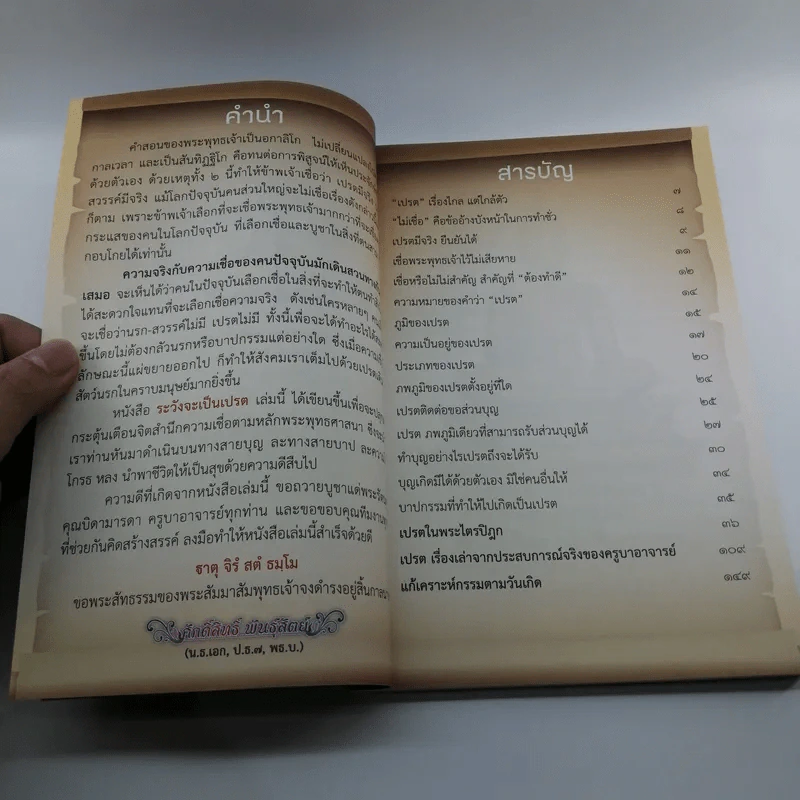 คำนำ
คำสอนของพระพุทธเจ้าเป็นอกาลิโก ไม่เปลี่ยนแปลง
กาลเวลา และเป็นสันทิฏฐิโก คือทนต่อการพิสูจน์ให้เห็นประจักษ์
ด้วยตัวเอง ด้วยเหตุทั้ง ๒ นี้ทำให้ข้าพเจ้าเชื่อว่า เปรตมีจริง
สวรรค์มีจริง แม้โลกปัจจุบันคนส่วนใหญ่จะไม่เชื่อเรื่องดังกล่าว
ก็ตาม เพราะข้าพเจ้าเลือกที่จะเชื่อพระพุทธเจ้ามากกว่าที่จะ
กระแสของคนในโลกปัจจุบัน ที่เลือกเชื่อและบูชาในสิ่งที่ตน
กอบโกยได้เท่านั้น
ความจริงกับความเชื่อของคนปัจจุบันมักเดินสวนทาง
เสมอ จะเห็นได้ว่าคนในปัจจุบันเลือกเชื่อในสิ่งที่จะทำให้ตน
ได้สะดวกใจแทนที่จะเลือกเชื่อความจริง ดังเช่นใครหลายๆ คน
จะเชื่อว่านรก-สวรรค์ไม่มี เปรตไม่มี ทั้งนี้เพื่อจะได้ทำอะไรได้
ขึ้นโดยไม่ต้องกลัวนรกหรือบาปกรรมแต่อย่างใด ซึ่งเมื่อความ
ลักษณะนี้แผ่ขยายออกไป ก็ทำให้สังคมเราเต็มไปด้วยเปรต
สัตว์นรกในคราบมนุษย์มากยิ่งขึ้น
หนังสือ ระวังจะเป็นเปรต เล่มนี้ ได้เขียนขึ้นเพื่อจะ
กระตุ้นเตือนจิตสำนึกความเชื่อตามหลักพระพุทธศาสนา
เราท่านหันมาดำเนินบนทางสายบุญ ละทางสายบาป ละความ
โกรธ หลง นำพาชีวิตให้เป็นสุขด้วยความดีสืบไป
ความดีที่เกิดจากหนังสือเล่มนี้ ขอถวายบูชาแด่พระรัตน
คุณบิดามารดา ครูบาอาจารย์ทุกท่าน และขอขอบคุณทีมงาน
ที่ช่วยกันคิดสร้างสรรค์ ลงมือทำให้หนังสือเล่มนี้สำเร็จด้วยดี
ธาตุ จิรํ สตํ ธมฺโม
ขอพระสัทธรรมของพระสัมมาสัมพุทธเจ้าจงดำรงอยู่สิ้นกาล
ศักดิ์สิทธิ์ พันธุ์สัตย์
(น.ธ.เอก, ป.ธ.๗, พธ.บ.)
สารบัญ
"เปรต" เรื่องไกล แต่ใกล้ตัว ๗
"ไม่เชื่อ" คือข้ออ้างบังหน้าในการทำชั่ว ๘
เปรตมีจริง ยืนยันได้ ๙
เชื่อพระพุทธเจ้าไว้ไม่เสียหาย ๑๑
เชื่อหรือไม่ไม่สำคัญ สำคัญที่ "ต้องทำดี" ๑๒
ความหมายของคำว่า "เปรต" ๑๔
ภูมิของเปรต ๑๕
ความเป็นอยู่ของเปรต ๑๗
ประเภทของเปรต ๒๐
ภพภูมิของเปรตตั้งอยู่ที่ใด ๒๔
เปรตติดต่อขอส่วนบุญ ๒๕
เปรต ภพภูมิเดียวที่สามารถรับส่วนบุญได้ ๒๗
ทำบุญอย่างไรเปรตถึงจะได้รับ ๓๐
บุญเกิดมีได้ด้วยตัวเอง มิใช่คนอื่นให้ ๓๔
บาปกรรมที่ทำให้ไปเกิดเป็นเปรต ๓๕
เปรตในพระไตรปิฎก ๓๖
เปรต เรื่องเล่าจากประสบการณ์จริงของครูบาอาจารย์ ๑๐๙
แก้เคราะห์กรรมตามวันเกิด ๑๔๙